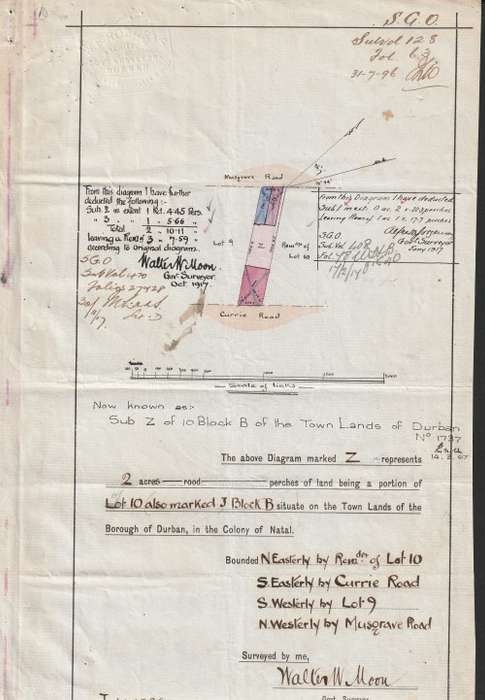 S.G.O.
Sub Vol 123
Fol. 63
31-7-96
Musgrave Road
From this diagram I have further
deducted the following:-
Sub 2 in extent 1 Rd. 4.45 Pers.
" 3 " 1 " 5.66 "
Total 2 " 10.11
leaving a Rem: of 3 " 7.59 "
according to original diagram.
S.G.O
Sub Vol 470
Folio 27428
Walter W. Moon.
Gov: Surveyor
Oct 1917.
From this Diagram I have deducted
Sub 1 meas.
leaving Rem of 1 ac 1 r. 17.7 perches
S.G.O.
Sub Vol 408
Fol.
Govt Surveyor
1917
17/2/17
Lot 9
Z
Remdr of
Lot 10
Currie Road
Scale of Links
Now known as:-
Sub Z of 10 Block B of the Town Lands of Durban
No 1737
14.2.07
The above Diagram marked Z represents
2 acres — rood — perches of land being a portion of
Lot 10 also marked J Block B situate on the Town Lands of the
Borough of Durban, in the Colony of Natal.
Bounded N Easterly by Remdr of Lot 10
S. Easterly by Currie Road
S. Westerly by Lot 9
N. Westerly by Musgrave Road
Surveyed by me,
Walter W. Moon
Govt. Surveyor